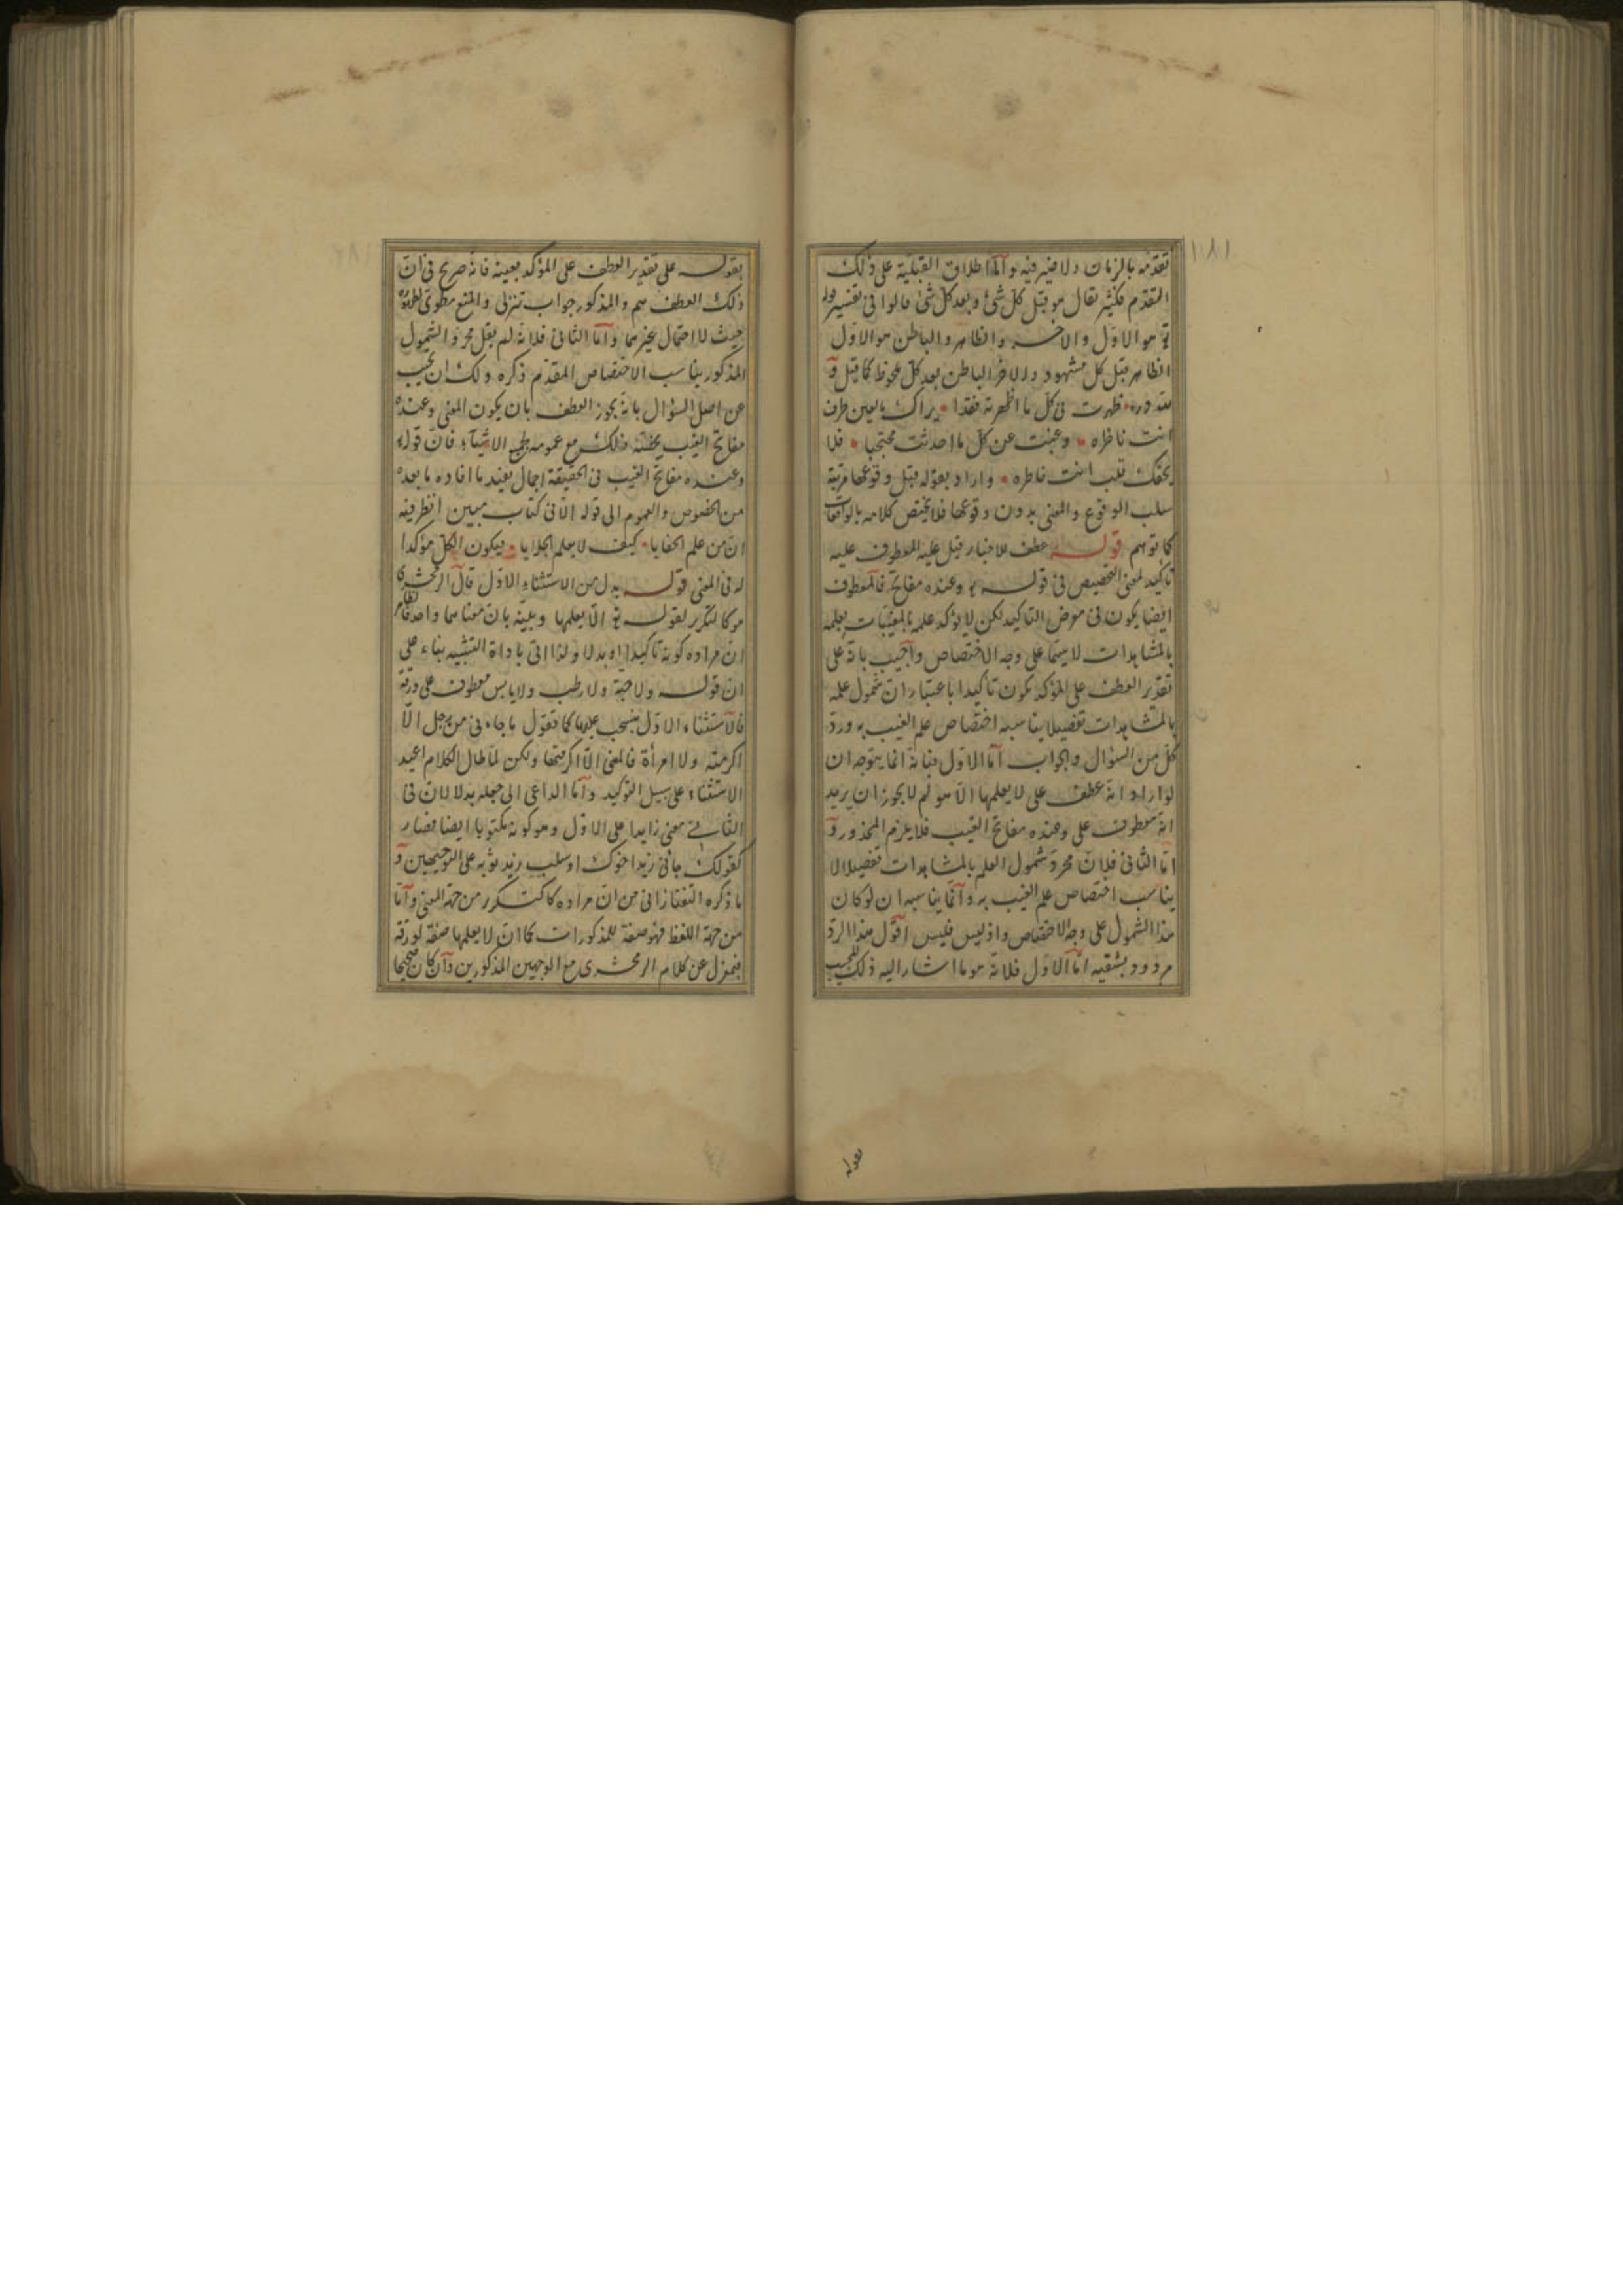 ١٨١
تقدمه بالزمان ولا ضير فيه واما اطلاق القبلية على ذلك
التقدم فكثير يقال هو قبل كل شئ وبعد كل شئ قالوا فى تفسير قوله
تع هو الاول والاخر والظاهر والباطن هو الاول
الظاهر قبل كل مشهود والاخر الباطن بعد كل ملحوظ كما قيل و
لله دره ظهرت فى كل ما اظهرته فغدا يراك بالعين طرف
انت ناظره وغبت عن كل ما احدثت محتجبا فلا
يحقك قلب انت خاطره واراد بقوله قبل وقوعها مرتبة
سلب الوقوع والمعنى بدون وقوعها فلا يختص كلامه بالواقعات
كما توهم قوله عطف للاخبار قيل عليه المعطوف عليه
تاكيد لمعنى التخصيص فى قوله تع وعنده مفاتح فالمعطوف
ايضا يكون فى معرض التاكيد لكن لا يؤكد علمه بالمغيبات بعلمه
بالمشاهدات لا سيما على وجه الاختصاص واجيب بانه على
تقدير العطف على المؤكد يكون تاكيدا باعتبار ان شمول علمه
بالمشاهدات تفصيلا يناسبه اختصاص علم الغيب به ورد
كل من السؤال والجواب اما الاول فبانه انما يتوجه ان
لو اراد انه عطف على لا يعلمها الا هو لم لا يجوز ان يريد
انه معطوف على وعنده مفاتح الغيب فلا يلزم المحذور و
اما الثانى فلان مجرد شمول العلم بالمشاهدات تفصيلا لا
يناسب اختصاص علم الغيب به وانما يناسبه ان لو كان
هذا الشمول على وجه الاختصاص واذ ليس فليس اقول هذا الرد
مردود بشقيه اما الاول فلانه هو ما اشار اليه ذلك المجيب
بقوله
بقوله على تقدير العطف على المؤكد بعينه فانه صريح فى ان
ذلك العطف مم والمذكور جواب تنزلى والمنع مطوى لظهوره
حيث لا احتمال غيرهما واما الثانى فلانه لم يقل مجرد الشمول
المذكور يناسب الاختصاص المقدم ذكره ولك ان تجيب
عن اصل السؤال بانه يجوز العطف بان يكون المعنى وعنده
مفاتح الغيب يختص ذلك مع عمومه لجميع الاشياء فان قوله
وعنده مفاتح الغيب فى الحقيقة اجمال يفيد ما افاده ما بعده
من الخصوص والعموم الى قوله الا فى كتاب مبين انظر فيه
ان من علم الخفايا كيف لا يعلم الجلايا فيكون الكل مؤكدا
له فى المعنى قوله بدل من الاستثناء الاول قال الزمخشرى
هو كالتكرير لقوله تع الا يعلمها وبينه بان معناهما واحد فظاهر
ان مراده كونه تاكيدا او بدلا ولذا اتى باداة التشبيه بناء على
ان قوله ولا حبة ولا رطب ولا يابس معطوف على ورقة
فالاستثناء الاول منسحب عليها كما تقول ما جاءنى من رجل الا
اكرمته ولا امرأة فالمعنى الا اكرمتها ولكن لما طال الكلام اعيد
الاستثناء على سبيل التوكيد واما الداعى الى جعله بدلا لان فى
الثانى معنى زايدا على الاول وهو كونه مكتوبا ايضا فصار
كقولك جانى زيد اخوك او سلب زيد ثوبه على التوجيهين و
ما ذكره التفتازانى من ان مراده كالتكرر من جهة المعنى واما
من جهة اللفظ فهو صفة للمذكورات كما ان لا يعلمها صفة لورقة
فبمعزل عن كلام الزمخشرى مع الوجهين المذكورين وان كان صحيحا